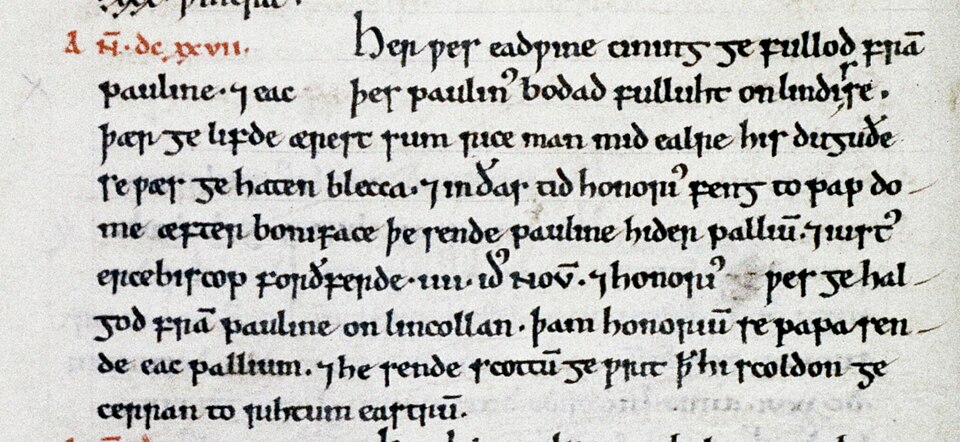 A N̄. dcxxvii. Her ƿes eadƿine cining ge fullod frā
pauline. ⁊ eac þes paulin᾽ bodad fulluht on lindisre.
þær ge lifde ærest sum rice man mid ealre his duguðe
se ƿæs ge haten blecca. ⁊ in ðas tid honori᾽ feng to pap do
me æfter boniface þe sende pauline hider palliū. ⁊ iust᾽
ercebiscop forðferde. iiii. id᾽ Nov̄. ⁊ honori᾽ ƿes ge hal
god frā pauline on lincollan. þam honoriū se papa sen
de eac pallium. ⁊ he sende scottū ge ƿrit ꝥ hi scoldon ge
cerran to rihtum eastrū.